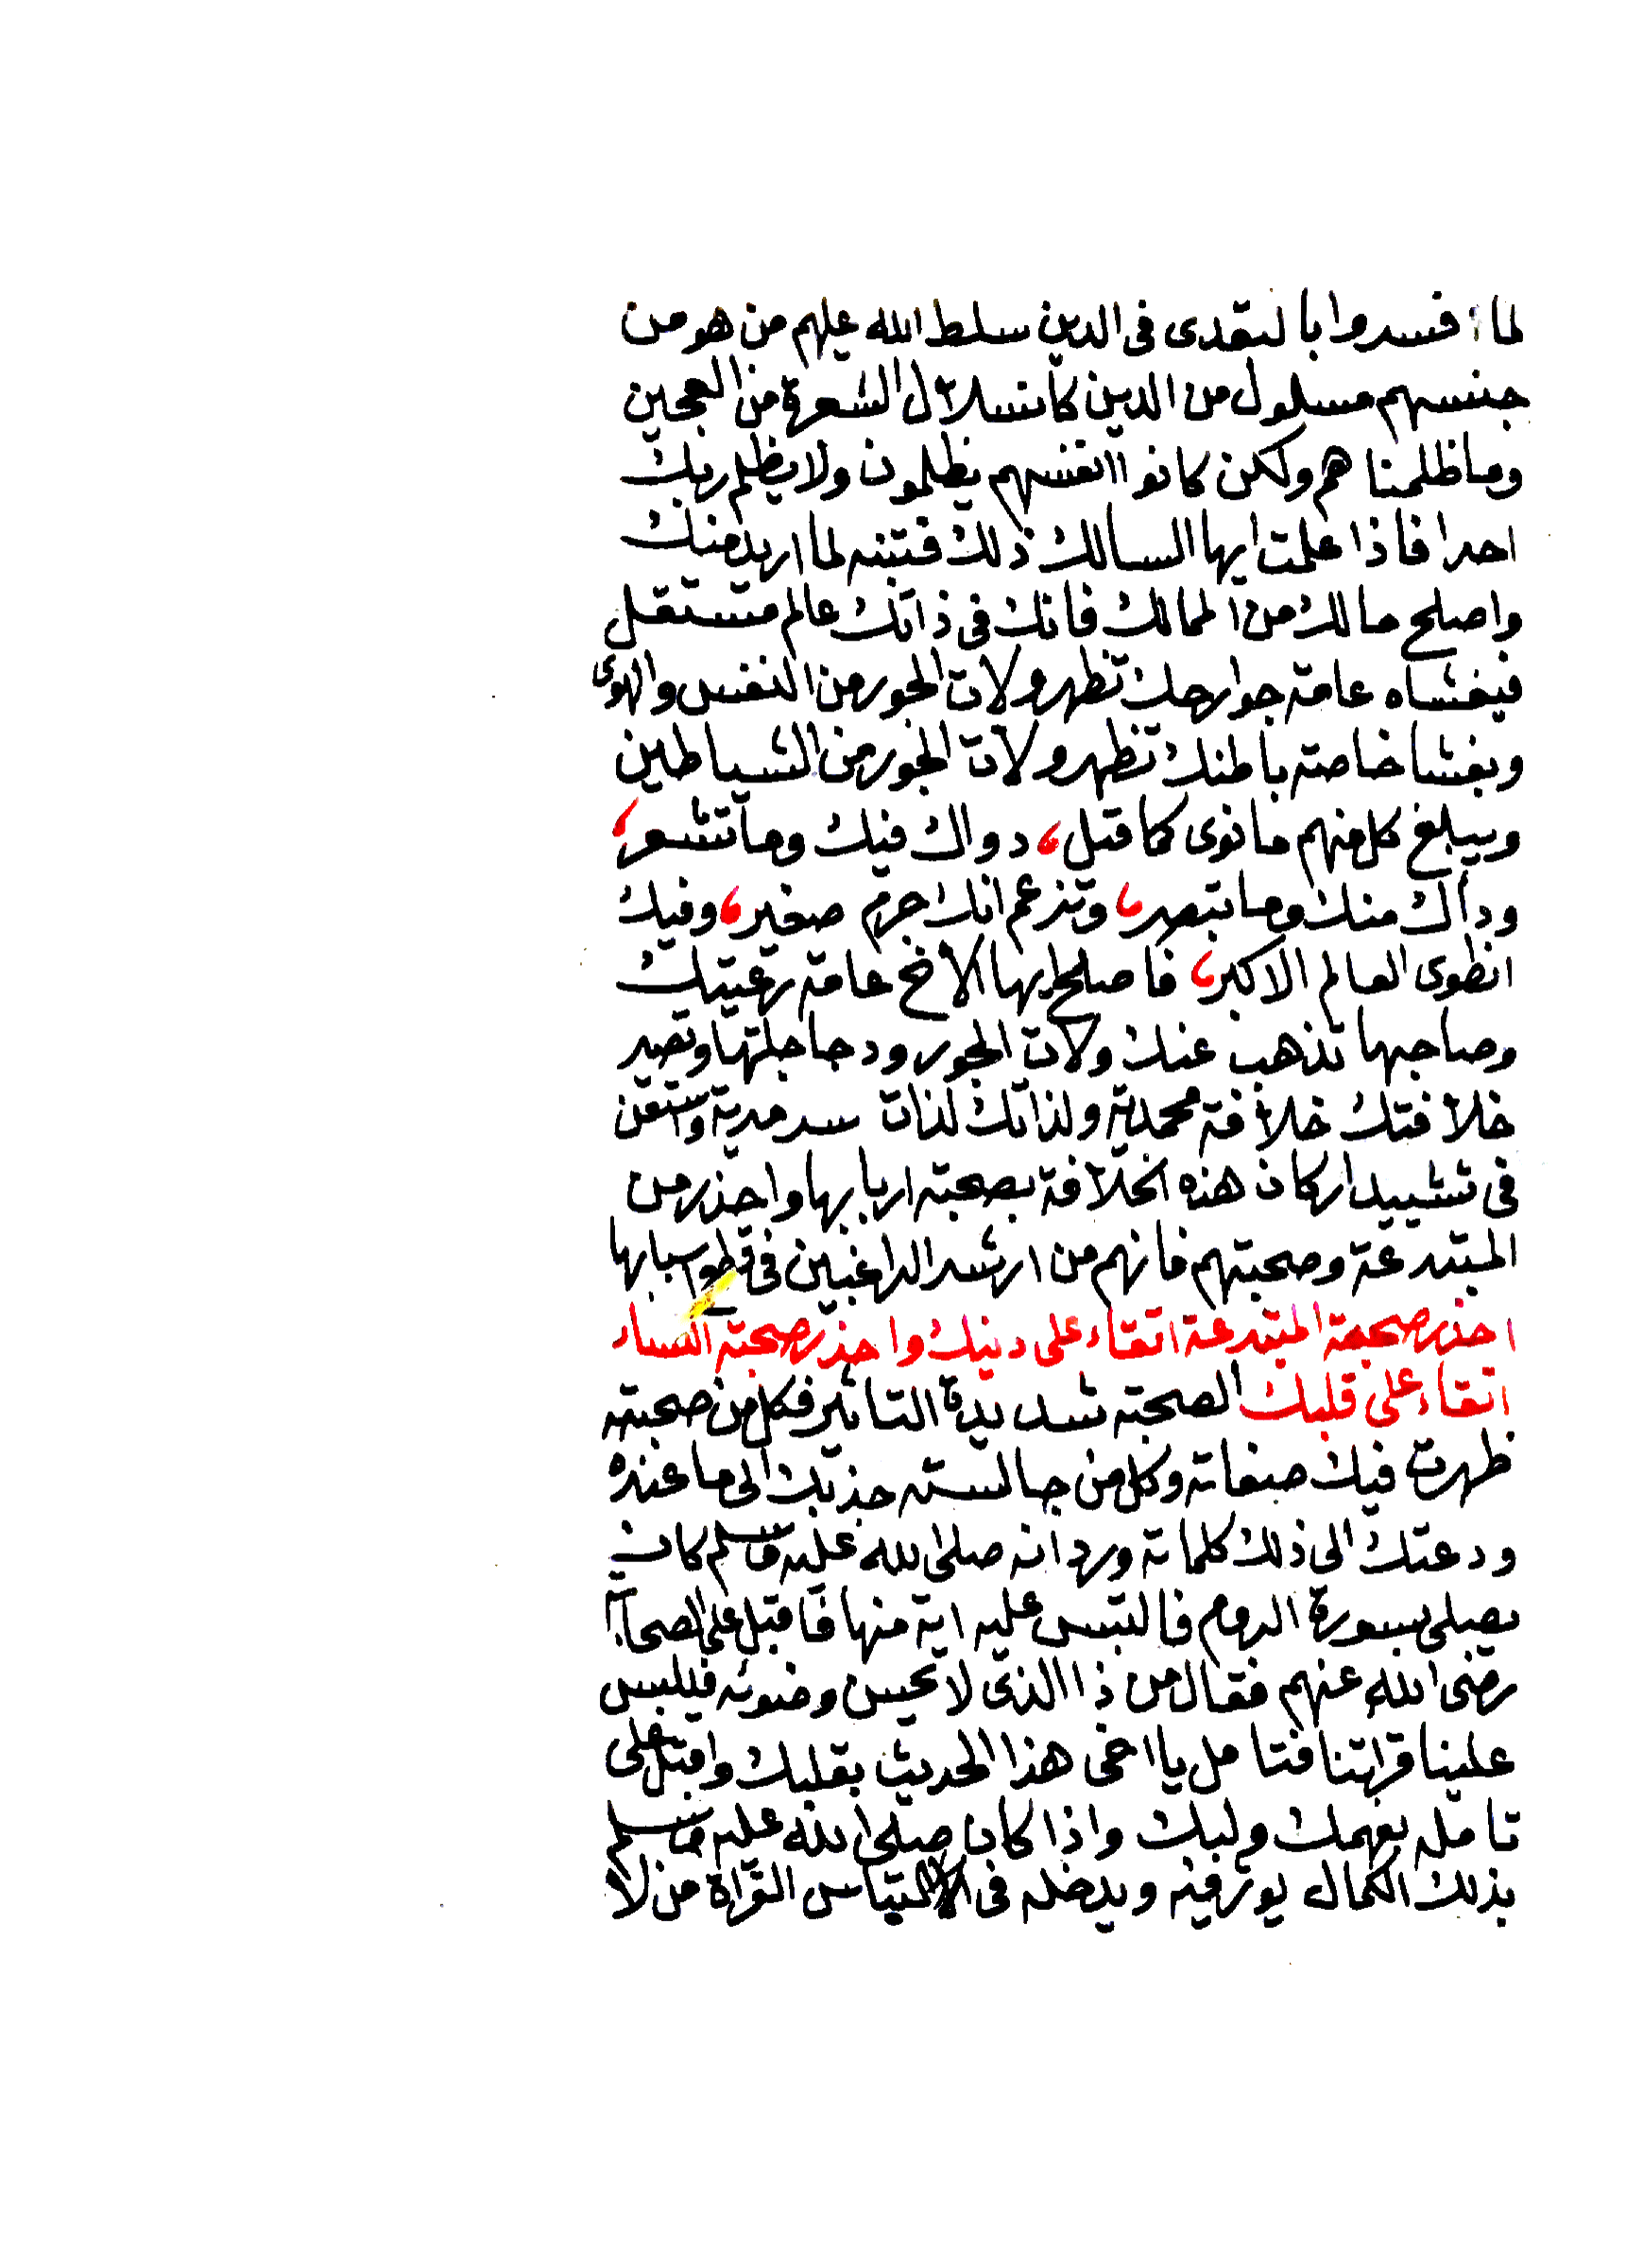 لما افسدوا بالتعدى فى الدين سلط الله عليهم من هو من
جنسهم مسلول من الدين كانسلال الشعرة من العجين
وما ظلمناهم ولكن كانوا انفسهم يظلمون ولا يظلم ربك
احدا فاذا علمت ايها السالك ذلك فتنبه لما اريد منك
واصلح مالك من الممالك فانك فى ذاتك عالم مستقل
فيغشاه عامة جوارحك تظهر ولات الجور من النفس والهوى
وبغشا خاصة باطنك تظهر ولات الجور من الشياطين
ويبلغ كل منهم ما نوى كما قيل، دواك فيك وما تشعر،
وداك منك وما تبصر، وتزعم انك جرم صغير، وفيك
انطوى العالم الاكبر، فاصلح ايها الاخ عامة رعيتك
وصاحبها تذهب عنك ولات الجور ودجاجلتها وتصير
خلافتك خلافة محمدية ولذاتك لذات سرمدية واستعن
فى تشييد اركان هذه الخلافة بصحبة اربابها واحذر من
المبتدعة وصحبتهم فانهم من ارشد الراغبين فى قطع اسبابها
احذر صحبة المبتدعة اتقاء على دينك واحذر صحبة النساء
اتقاء على قلبك الصحبة شديدة التاثير فكل من صحبته
ظهرت فيك صفاته وكل من جالسته جذبك الى ما عنده
ودعتك الى ذلك كلماته ورد انه صلى الله عليه وسلم كان
يصلى بسورة الروم فالتبس عليه اية منها فاقبل على الصحابة
رضى الله عنهم فقال من ذا الذى لا يحسن وضوئه فيلبس
علينا قراتنا فتامل يا اخى هذا الحديث بقلبك واقبل على
تامله بفهمك ولبك واذا كان صلى الله عليه وسلم
بذلك الكمال يوثر فيه ويدخله فى التباس القراة من لا